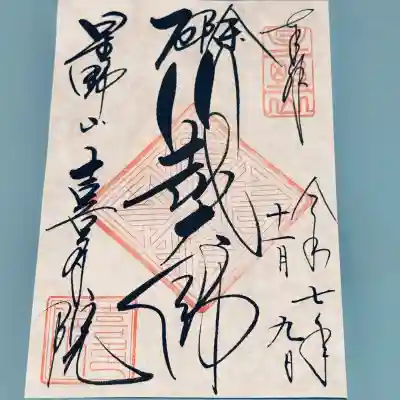 奉拝
令和七年
十一月九日
厄除
川越大師
星野山喜多院